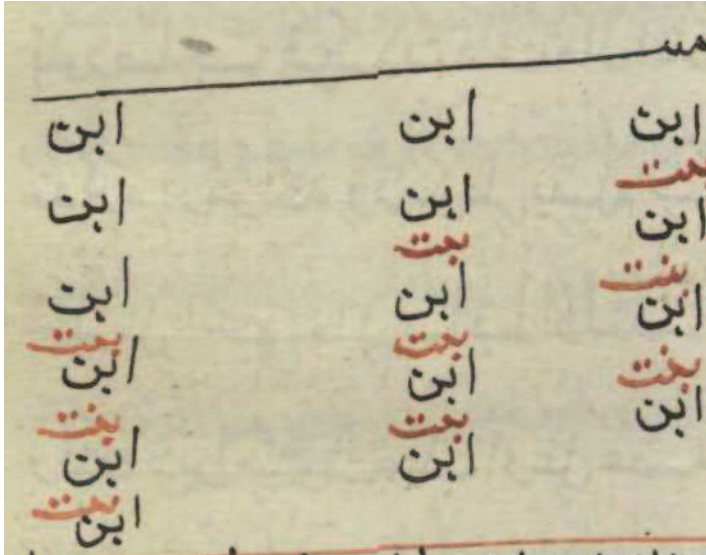 ابن
بنت
ابن
بنت
ابن
بنت
ابن
ابن
ابن
بنت
ابن
بنت
ابن
بنت
ابن
ابن
ابن
ابن
بنت
ابن
بنت
ابن
بنت
ابن